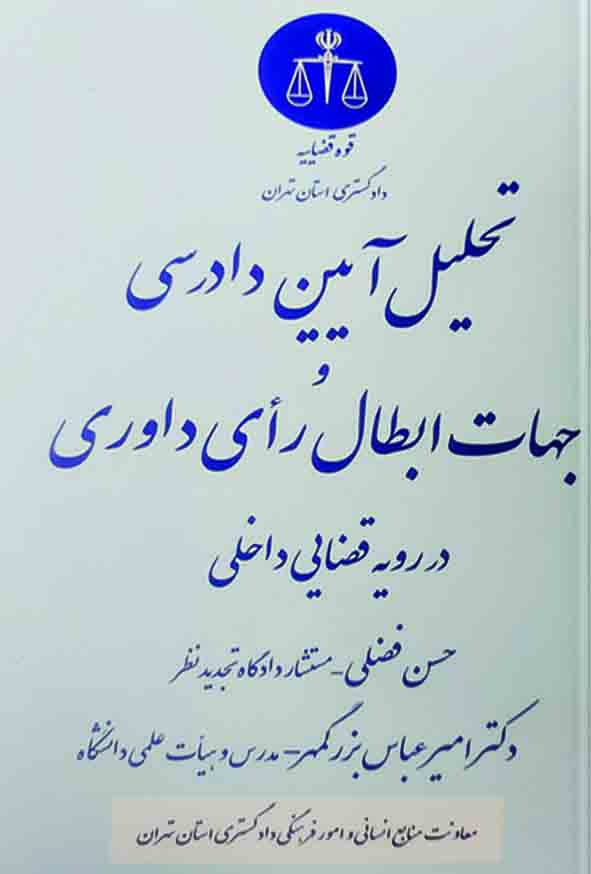 قوه قضاییه
دادگستری استان تهران
تحلیل آیین دادرسی
و
جهات ابطال رأی داوری
در رویه قضایی داخلی
حسن فضلی - مستشار دادگاه تجدیدنظر
دکتر امیرعباس بزرگمهر - مدرس و هیأت علمی دانشگاه
معاونت منابع انسانی و امور فرهنگی دادگستری استان تهران